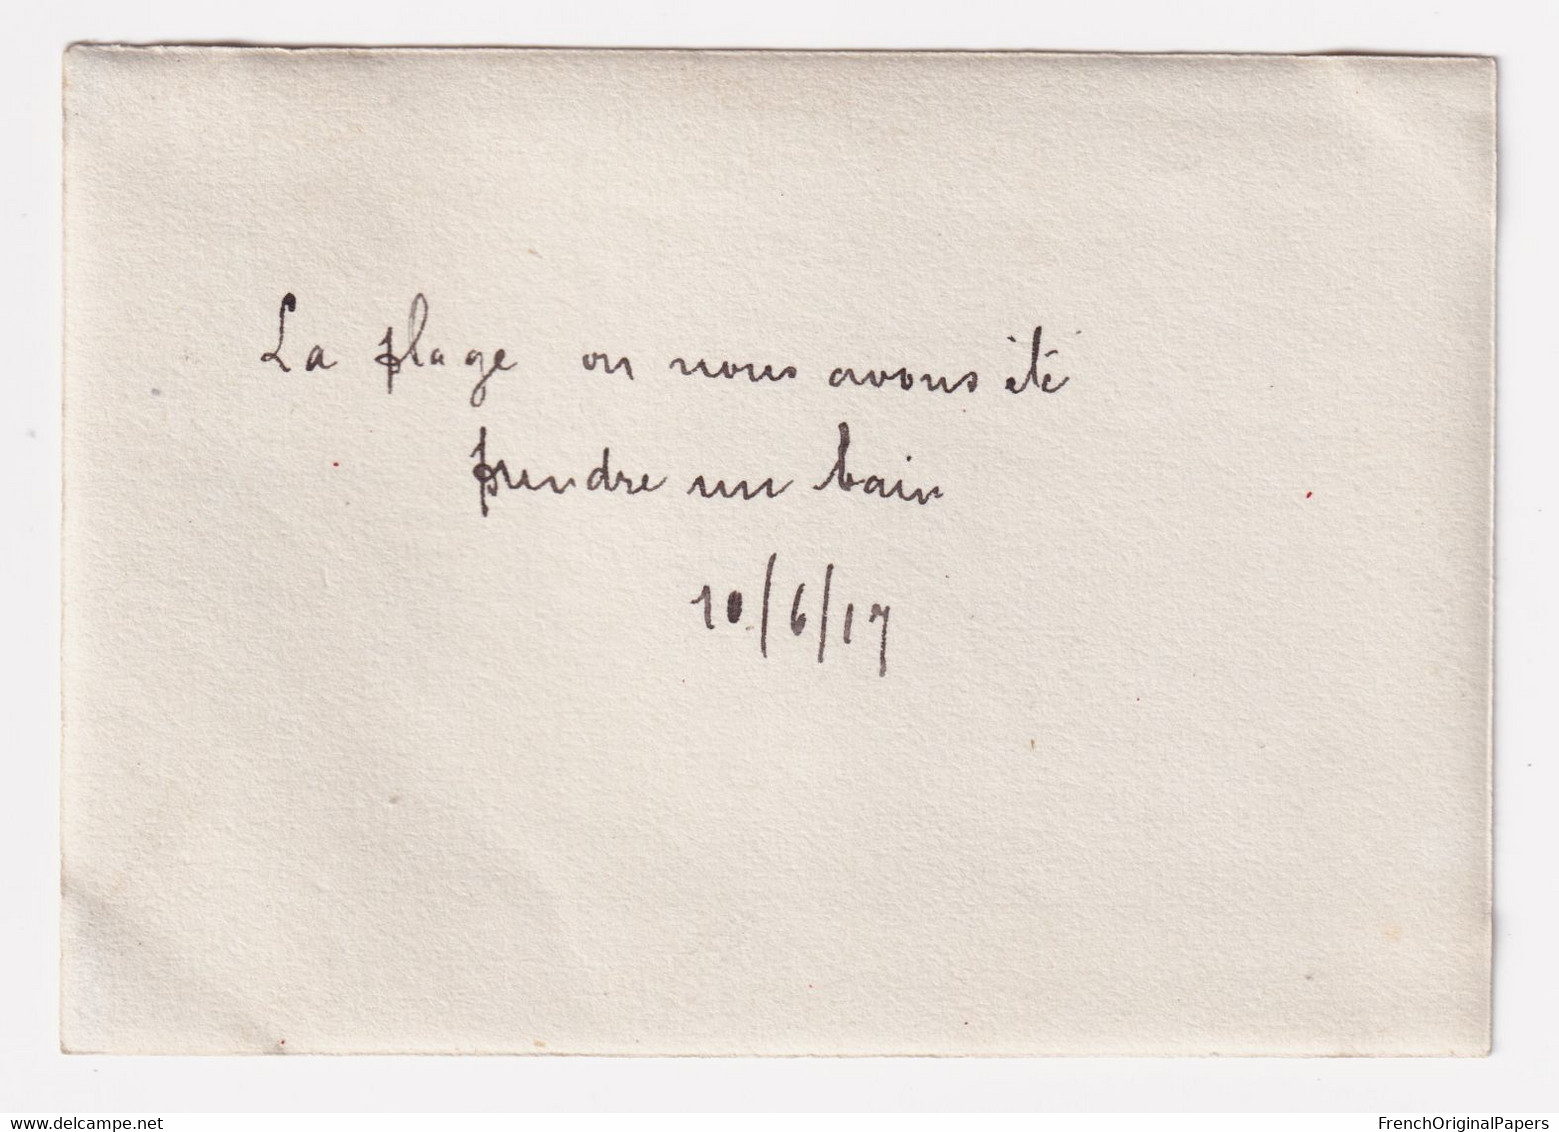 La plage ou nous avons été
prendre un bain
10/6/17
www.delcampe.net
FrenchOriginalPapers